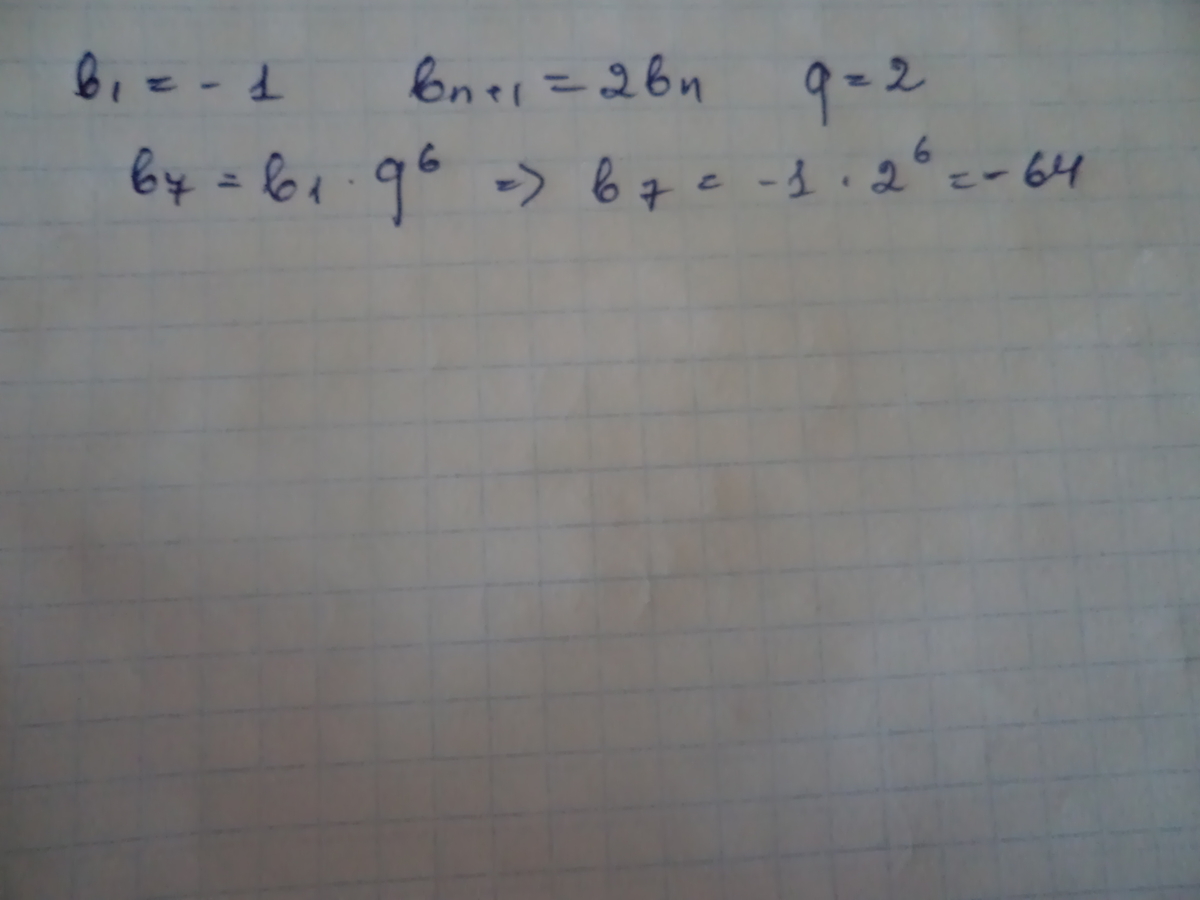 b₁ = - 1 bₙ₊₁ = 2bₙ q = 2
b₇ = b₁ · q⁶ => b₇ = -1 · 2⁶ = - 64